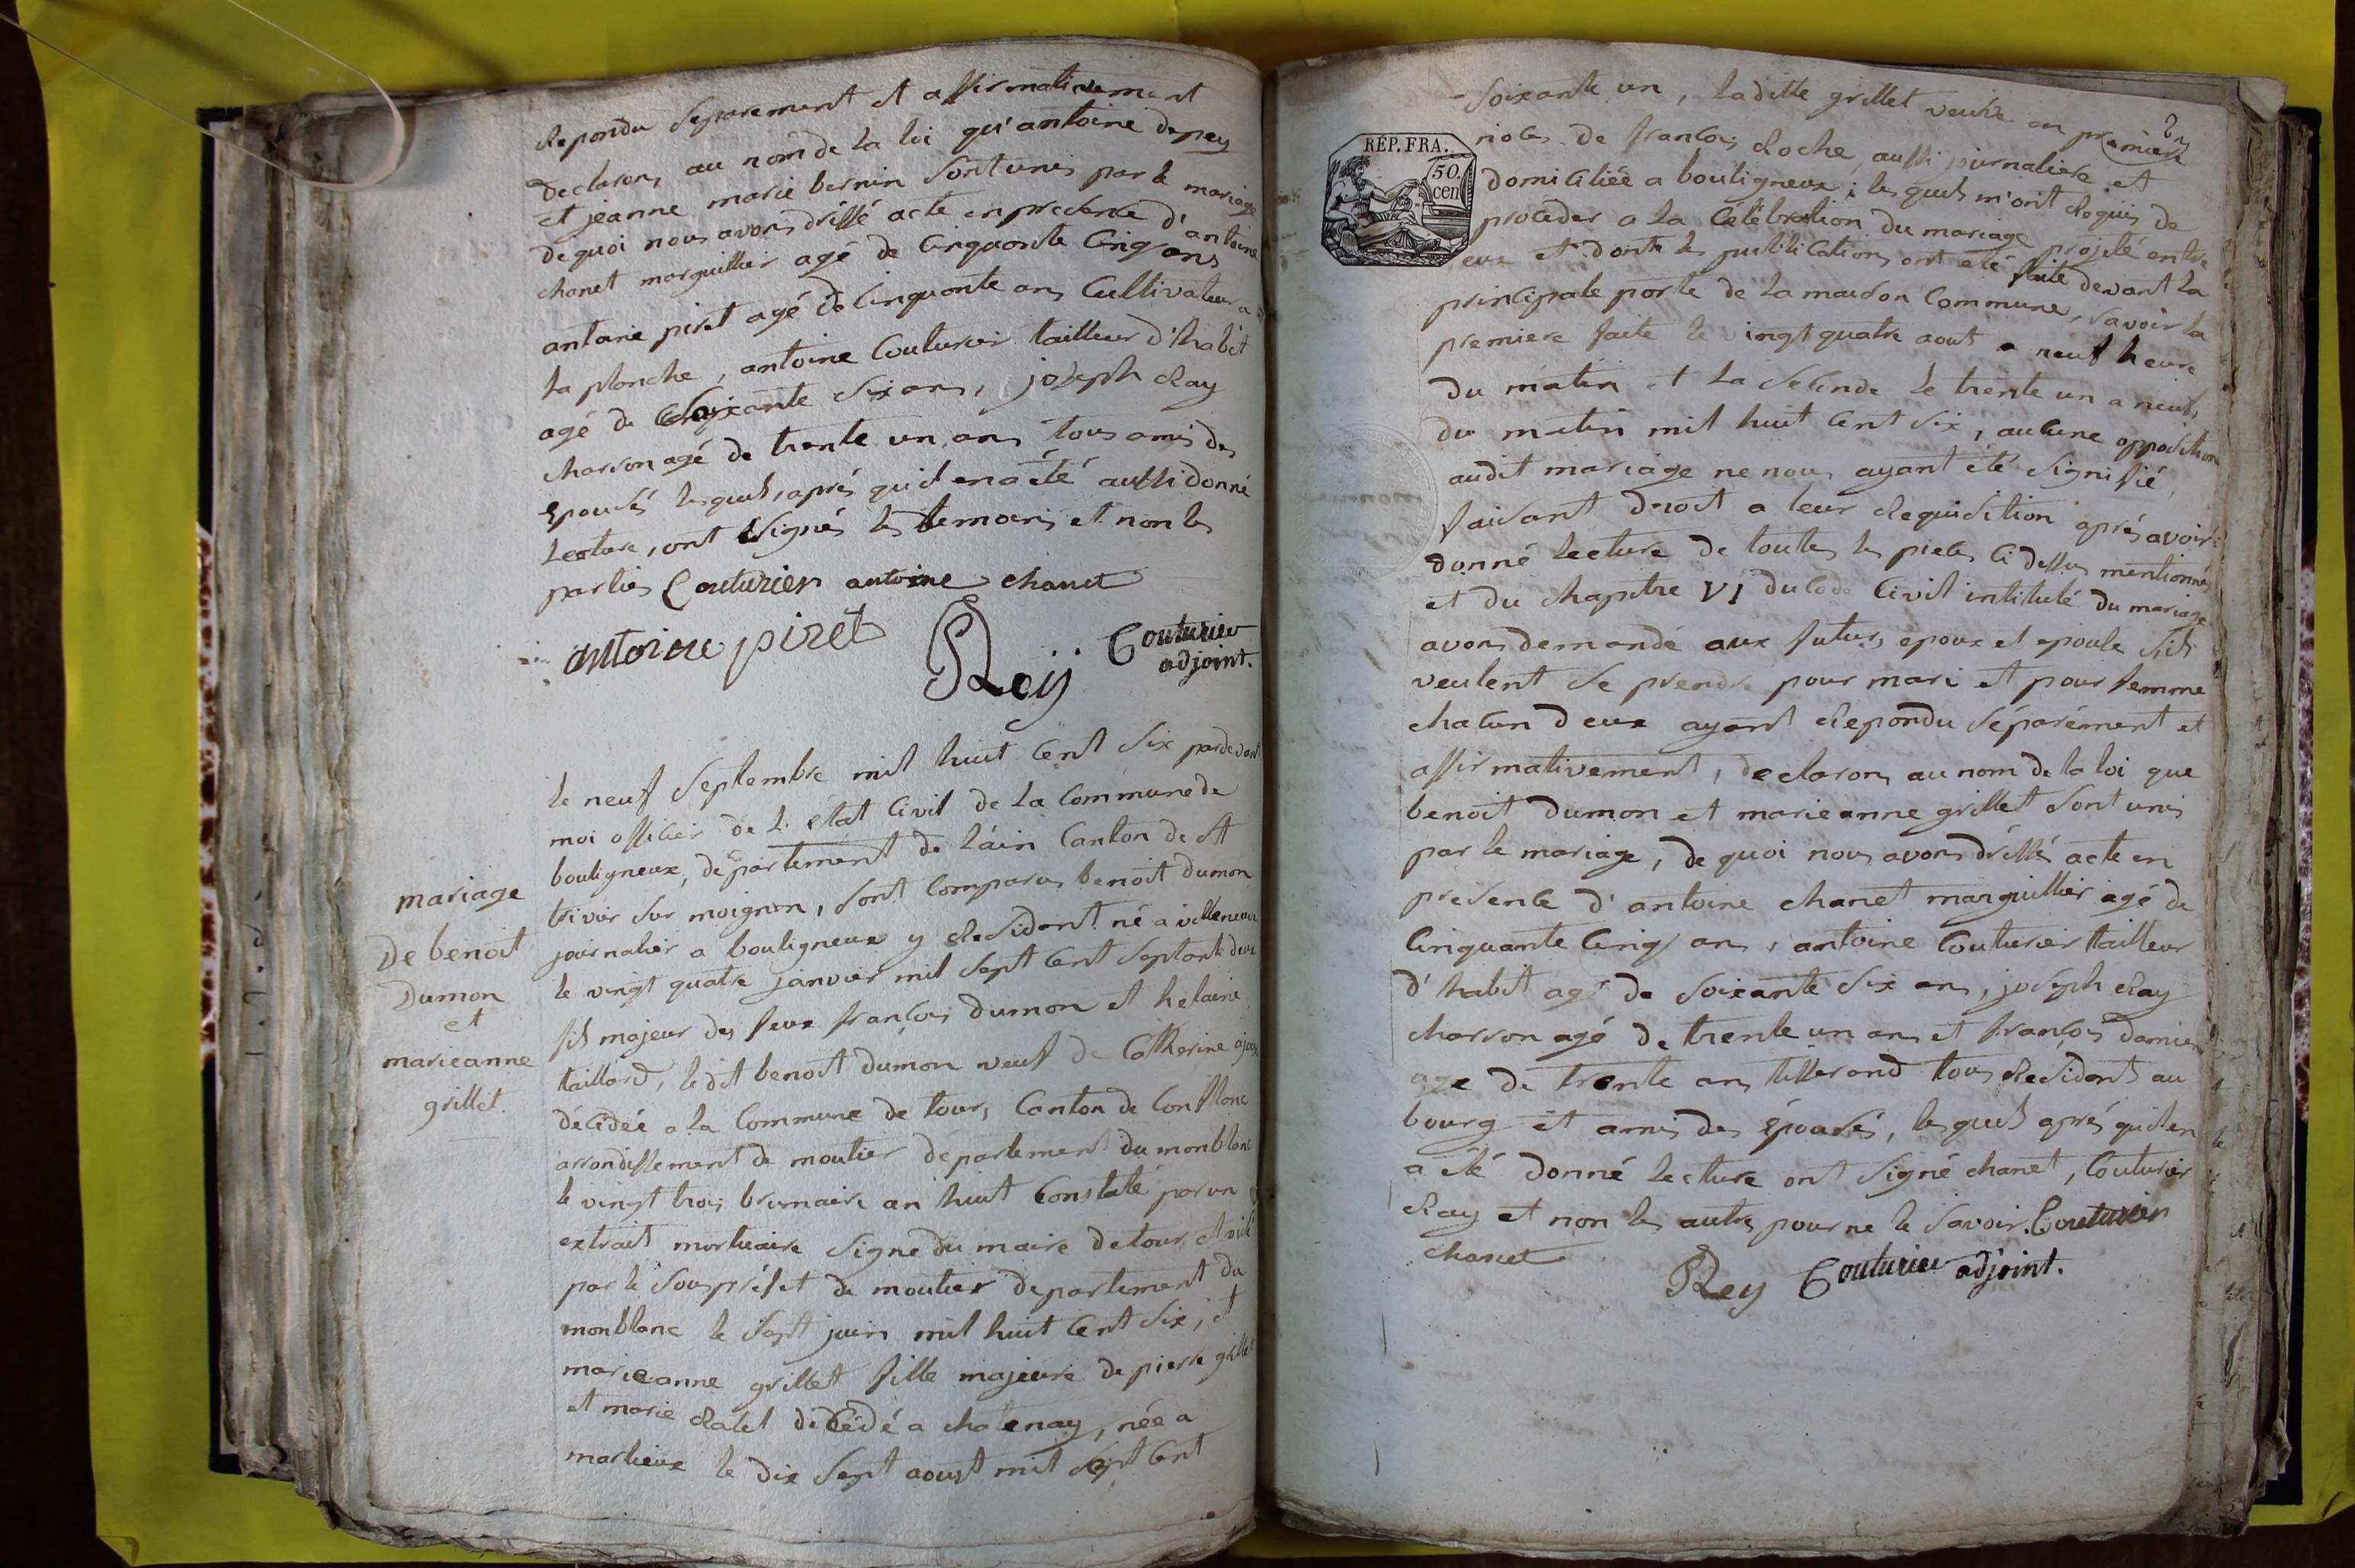 Repondu separement et affirmativement
declarons au nom de la loi qu'antoine depey
et jeanne marie bernin sont unis par le mariage
de quoi nous avons dréssé acte en presence d'antoine
chanet marguillier agé de Cinquante Cinq ans
antoine piret agé de Cinquante ans Cultivateur a
la planche, antoine Couturier tailleur d'habit
agé de Soixante Six ans, joseph Ray
charron agé de trente un ans tous amis des
épousés lesquels, aprés qu'il en a été aussi donné
Lecture, ont signés les temoins et non les
parties Couturier antoine chanet
antoine piret Reÿ Couturier
adjoint.
mariage
De benoit
Dumon
et
marieanne
grillet.
le neuf Septembre mil huit Cent Six pardevant
moi officier de l'état Civil de la Commune de
bouligneux, département de l'ain Canton de St
trivier sur moignan, sont Comparus benoit dumon
journalier a bouligneux y Residant né a villeneuve
le vingt quatre janvier mil sept Cent Septante deux
fils majeur des feux françois dumon et helaine
taillard, le dit benoit dumon veuf de Catherine
décédée a la Commune de tours, Canton de Conflanc
arrondissement de moutier département du monblanc
le vingt trois brumaire an huit Constaté par un
extrait mortuaire signé du maire de tours, et visé
par le Souspréfet de moutier departement du
monblanc le sept juin mil huit Cent Six, et
marieanne grillet fille majeure de pierre grillet
et marie Ratet décédé a chatenay, née a
marlieux le dix Sept aoust mil sept Cent
RÉP. FRA.
50.
cen
Soixante un, laditte grillet veuve en premiere
noces de francois Roche, aussi journaliere et
domiciliée a bouligneux; lesquels m'ont Requis de
proceder a la Célébration du mariage projeté entre
eux et dont les publications ont été faite devant la
principale porte de la maison Commune, savoir la
premiere faite le vingt quatre aout a neuf heure
du matin et la Seconde le trente un a neuf,
du matin mil huit Cent Six, aucune opposition
audit mariage ne nous ayant été signifié,
faisant droit a leur Requisition aprés avoir
donné lecture de toutes les pieces Ci dessus mentionnés
et du chapitre VI du Code Civil intitulé du mariage
avons demandé aux futurs epoux et epouse s'ils
veulent se prendre pour mari et pour femme
chacun deux ayant Repondu séparément et
affirmativement, declarons au nom de la loi que
benoit dumon et marieanne grillet sont unis
par le mariage, de quoi nous avons dréssé acte en
presence d'antoine chanet marguillier agé de
Cinquante Cinq ans, antoine Couturier tailleur
d'habit agé de soixante Six ans, joseph Ray
charron agé de trente un ans et françois damien
age de trente ans tisserand tous Residants au
bourg et amis des épousés, lesquels aprés qu'il en
a été donné Lecture ont signé chanet, Couturier
Ray et non les autres pour ne le savoir. Couturier
chanet
Rey Couturier adjoint.